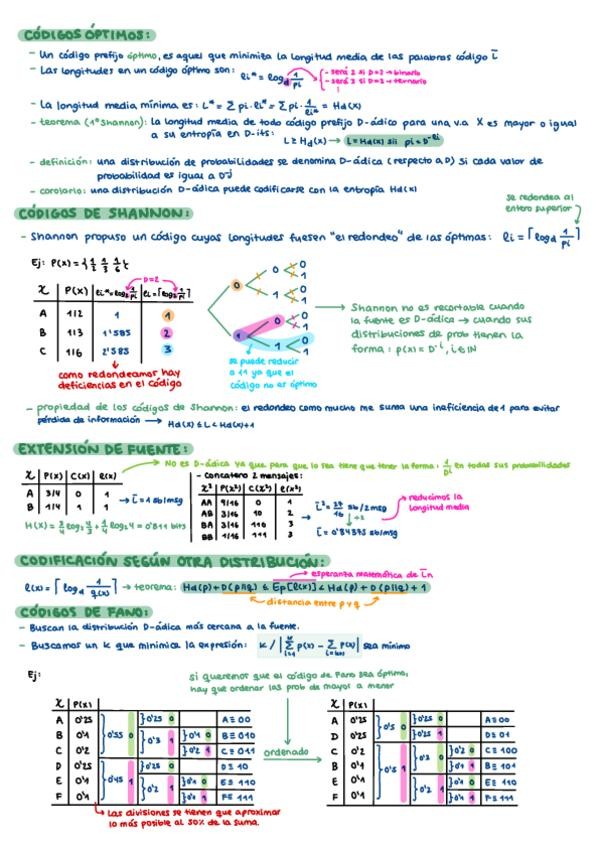 CÓDIGOS ÓPTIMOS:
- Un código prefijo óptimo, es aquel que minimiza la longitud media de las palabras código L̄
- Las longitudes en un código óptimo son: ℓi* = log_d 1/pi
- será 2 si D=2 → binario
- será 3 si D=3 → ternario
- La longitud media mínima es: L* = Σ pi·ℓi* = Σ pi · 1/ℓi* = Hd(x)
- teorema (1º Shannon): la longitud media de todo código prefijo D-ádico para una v.a X es mayor o igual
a su entropía en D-its: L ≥ Hd(x) → L = Hd(x) sii pi = D^-ℓi
- definición: una distribución de probabilidades se denomina D-ádica (respecto a D) si cada valor de
probabilidad es igual a D^-j
- corolario: una distribución D-ádica puede codificarse con la entropía Hd(x)
se redondea al
entero superior
CÓDIGOS DE SHANNON:
- Shannon propuso un código cuyas longitudes fuesen "el redondeo" de las óptimas: ℓi = ⌈log_d 1/pi⌉
Ej: P(x) = {1/2 1/3 1/6}
D=2
X P(X) ℓi* = log2 1/pi ℓi = ⌈log2 1/pi⌉
A 1/2 1 1
B 1/3 1'585 2
C 1/6 2'585 3
como redondeamos hay
deficiencias en el código
0 1 0 1 0 1 0 1 0 1 0 1 0 1
se puede reducir
a 11 ya que el
código no es óptimo
Shannon no es recortable cuando
la fuente es D-ádica → cuando sus
distribuciones de prob tienen la
forma: p(x) = D^-i, i ∈ IN
- propiedad de los códigos de Shannon: el redondeo como mucho me suma una ineficacia de 1 para evitar
pérdida de información → Hd(x) ≤ L < Hd(x)+1
EXTENSIÓN DE FUENTE:
No es D-ádica ya que para que lo sea tiene que tener la forma: 1/D^i en todas sus probabilidades
X P(X) C(X) ℓ(X)
A 3/4 0 1
B 1/4 1 1
→ L̄ = 1 sb/msg
H(X) = 3/4 log2 4/3 + 1/4 log2 4 = 0'811 bits
- Concateno 2 mensajes:
X² P(X²) C(X²) ℓ(X²)
AA 9/16 0 1
AB 3/16 10 2
BA 3/16 110 3
BB 1/16 111 3
→ L̄² = 27/16 sb/2msg
÷2
L̄ = 0'84375 sb/msg
reducimos la
longitud media
CODIFICACIÓN SEGÚN OTRA DISTRIBUCIÓN:
esperanza matemática de L̄n
ℓ(x) = ⌈log_d 1/q(x)⌉ → teorema: Hd(p) + D(p||q) ≤ Ep[ℓ(x)] < Hd(p) + D(p||q) + 1
distancia entre p y q
CÓDIGOS DE FANO:
- Buscan la distribución D-ádica más cercana a la fuente.
- Buscamos un K que minimice la expresión: K / | Σ p(x) - Σ p(x) | sea mínimo
Ej:
si queremos que el código de Fano sea óptimo,
hay que ordenar las prob de mayor a menor
X P(X)
A 0'25 0'55 0 0'25 0 A≡00
B 0'1 0'3 1 0'1 0 B≡010
C 0'2 0'2 1 C≡011
D 0'25 0'45 1 0'25 0 D≡10
E 0'1 0'2 1 0'1 0 E≡110
F 0'1 0'1 1 F≡111
ordenado
X P(X)
A 0'25 0'5 0 0'25 0 A≡00
D 0'25 0'25 1 D≡01
C 0'2 0'5 1 0'3 0 0'2 0 C≡100
B 0'1 0'1 1 B≡101
E 0'1 0'2 1 0'1 0 E≡110
F 0'1 0'1 1 F≡111
Las divisiones se tienen que aproximar
lo más posible al 50% de la suma.